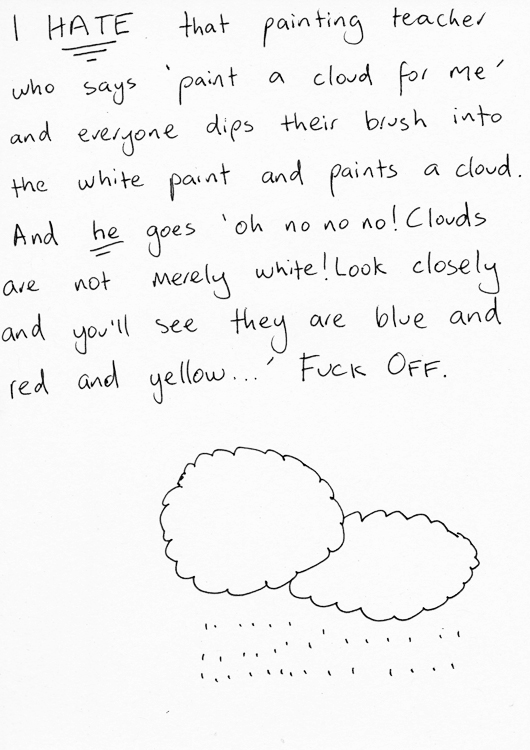 I HATE that painting teacher
who says 'paint a cloud for me'
and everyone dips their brush into
the white paint and paints a cloud.
And he goes 'oh no no no! Clouds
are not merely white! Look closely
and you'll see they are blue and
red and yellow...' FUCK OFF.